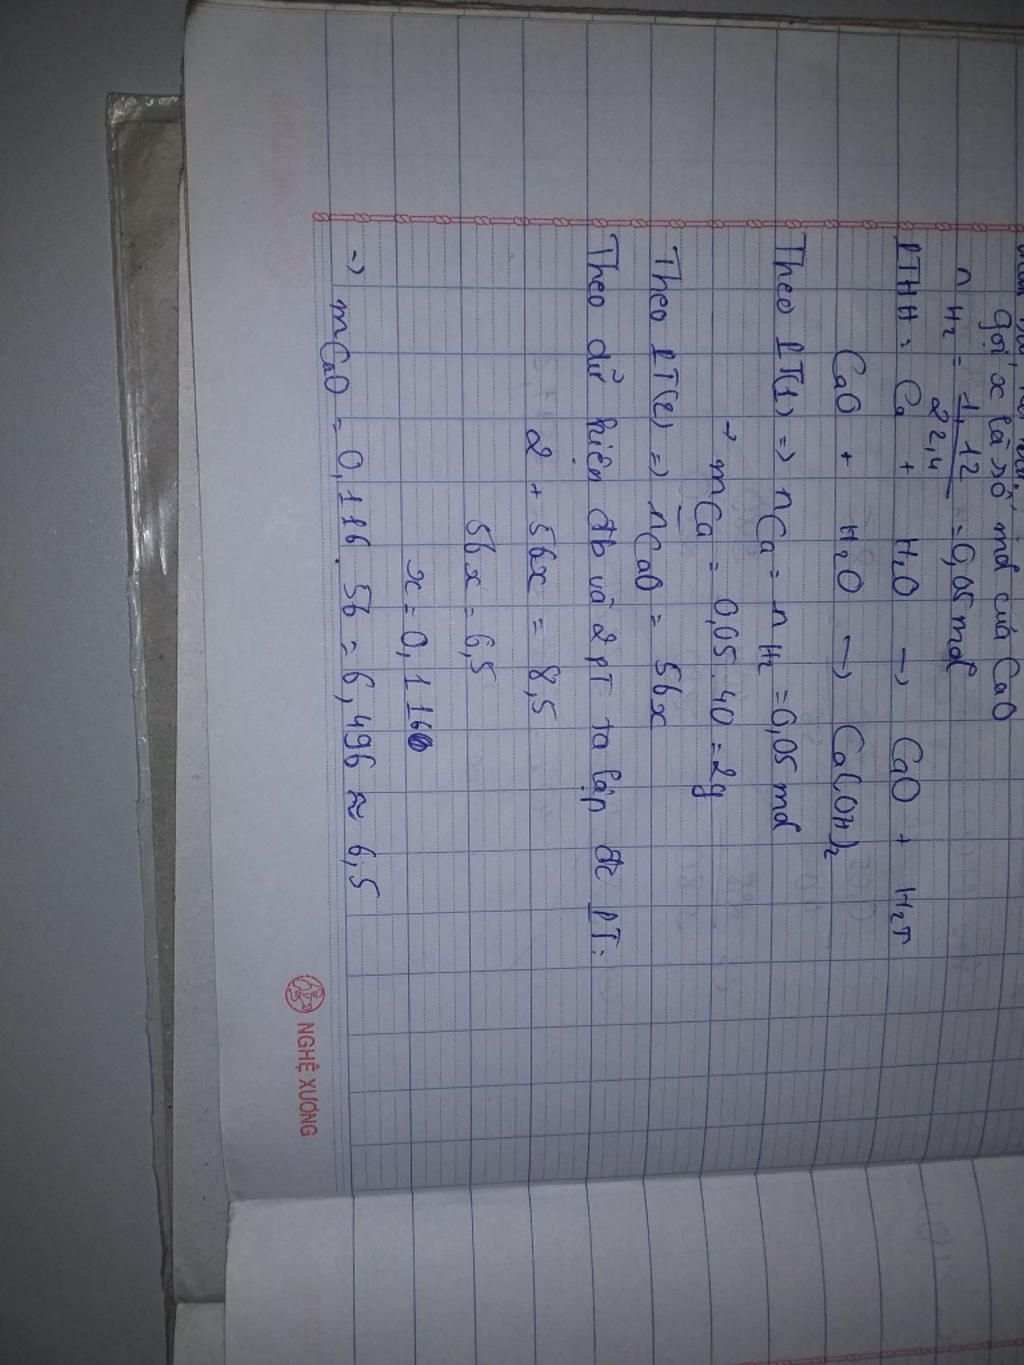 gọi x là số mol của CaO
n H₂ = 1,12 / 22,4 = 0,05 mol
PTHH: Ca + H₂O → CaO + H₂↑
CaO + H₂O → Ca(OH)₂
Theo PT(1) => nCa = nH₂ = 0,05 mol
→ mCa = 0,05 . 40 = 2g
Theo PT(2) => nCaO = 56x
Theo dữ kiện đb và 2 PT ta lập đc PT:
2 + 56x = 8,5
56x = 6,5
x = 0,116
=> mCaO = 0,116 . 56 = 6,496 ≈ 6,5
NGHỆ XƯƠNG